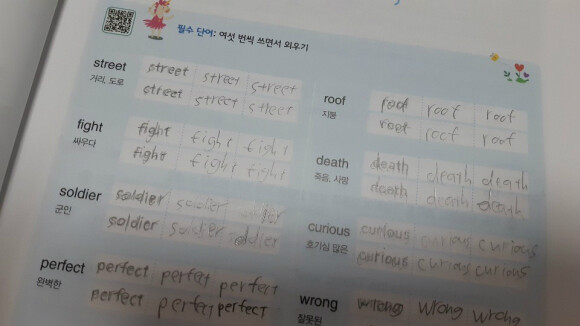 필수 단어: 여섯 번씩 쓰면서 외우기
street
거리, 도로
street street street
street street street
fight
싸우다
fight fight fight
fight fight fight
soldier
군인
soldier soldier
soldier soldier soldier
perfect
완벽한
perfect perfect perfect
perfect perfect perfect
roof
지붕
roof roof roof
roof roof roof
death
죽음, 사망
death death death
death death death
curious
호기심 많은
curious curious curious
curious curious curious
wrong
잘못된
wrong wrong wrong